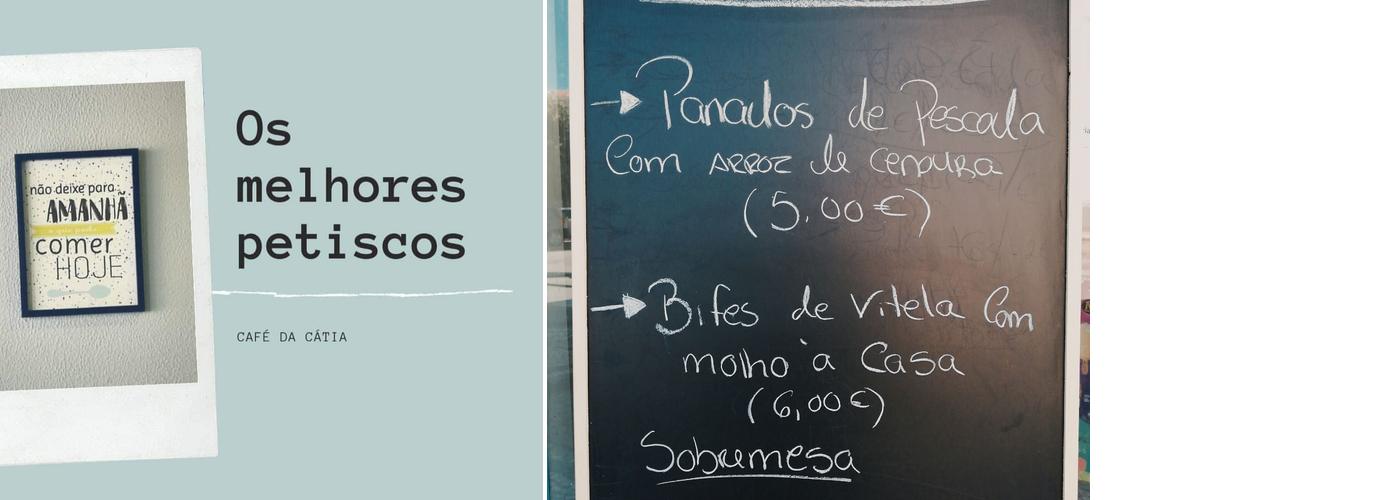 não deixe para
AMANHÃ
comer
HOJE
Os
melhores
petiscos
CAFÉ DA CÁTIA
Panados de Pescada
Com ARROZ de Cenoura
(5,00€)
Bifes de Vitela Com
molho à Casa
(6,00€)
Sobremesa